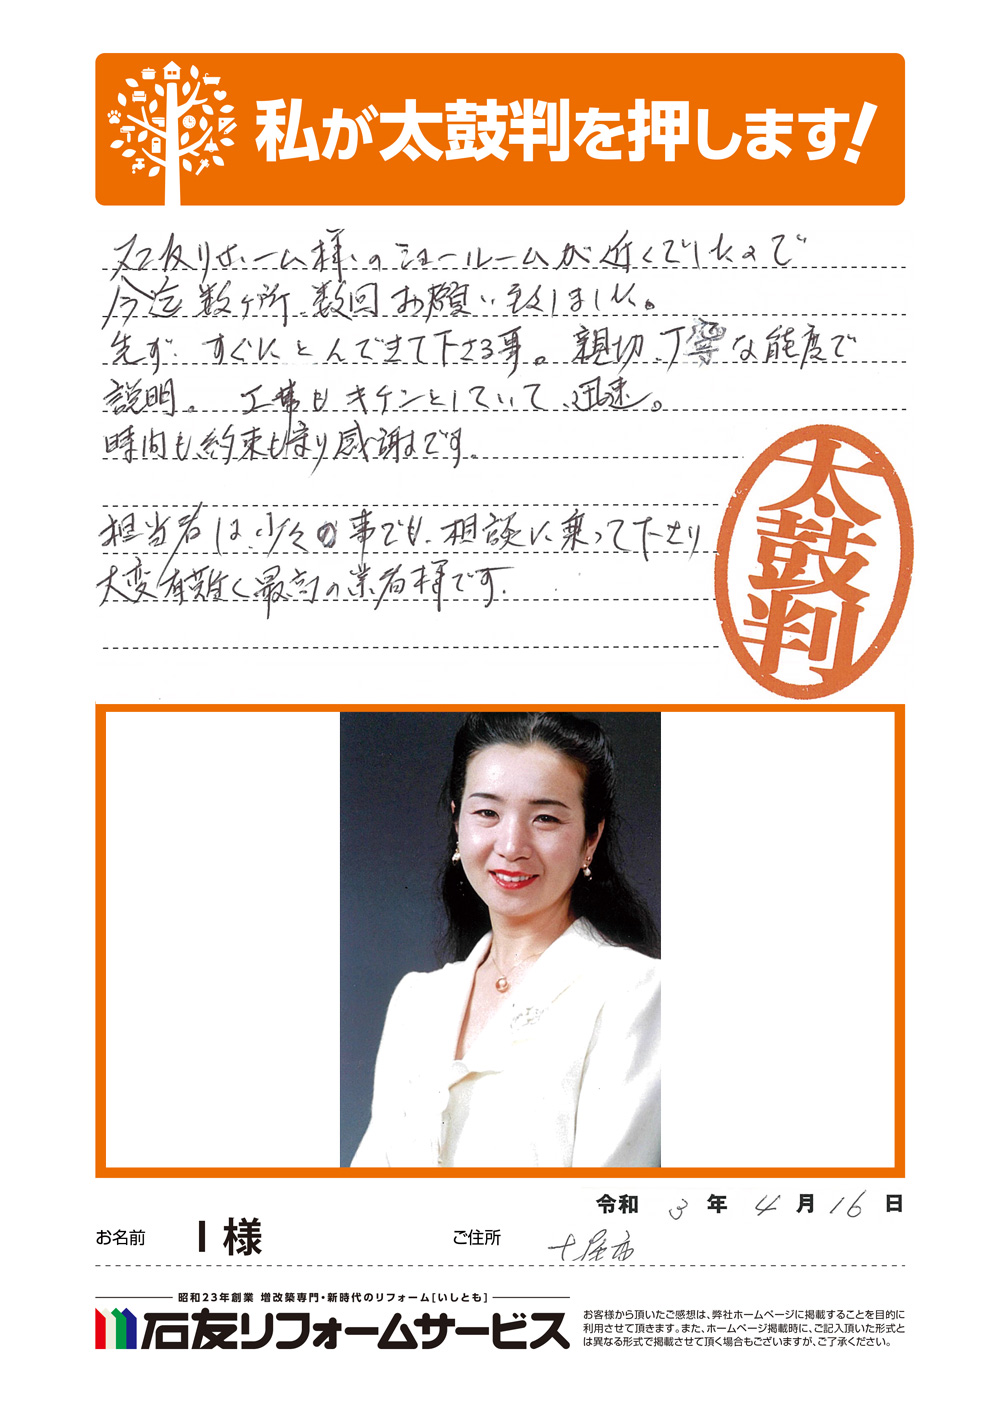 私が太鼓判を押します!
石友リホーム様のショールームが近くでしたので
今迄数ヶ所、数回お願い致しました。
先ず、すぐにとんできて下さる事。親切、丁寧な態度で
説明。 工事もキチンとしていて、迅速。
時間も約束も守り感謝です。
担当者は、少々の事でも、相談に乗って下さり
大変有難く最高の業者様です.
太鼓判
令和 3 年 4 月 16 日
お名前 I 様 ご住所
昭和23年創業 増改築専門・新時代のリフォーム[いしとも]
石友リフォームサービス
お客様から頂いたご感想は、弊社ホームページに掲載することを目的に
利用させて頂きます。また、ホームページ掲載時に、ご記入頂いた形式と
は異なる形式で掲載させて頂く場合もございますが、ご了承ください。